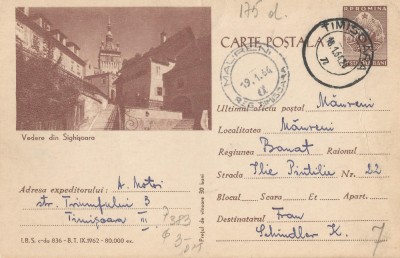 175 d.
CARTE POSTALA
R.P.ROMINA
TIMIȘOARA
19.1.64
Vedere din Sighișoara
Ultimul oficiu postal Măureni
Localitatea Măureni
Regiunea Banat Raionul
Strada Ilie Pintilie Nr. 22
Blocul Scara Et. Apart.
Destinatarul Frau
Schindler K.
7
Adresa expeditorului: A. Motoi
str. Triumfului 3
Timișoara III
Prețul de vînzare 30 bani
I.B.S. c-da 836 - B.T. IX.1962 - 80.000 ex.